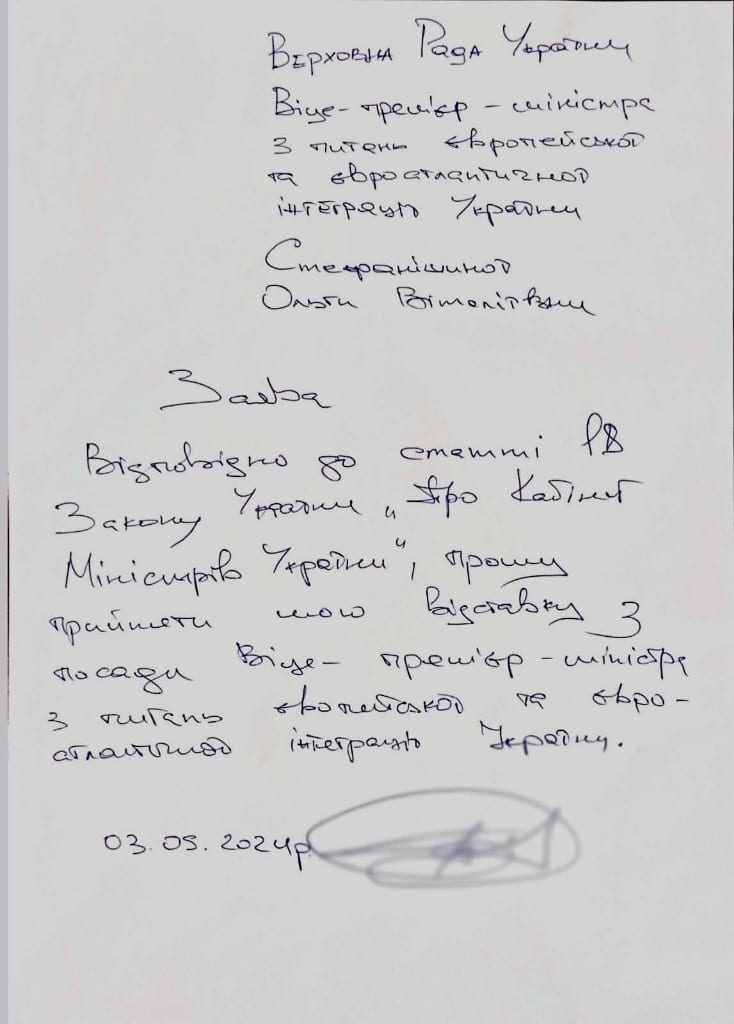 Верховна Рада України
Віце-прем'єр-міністра
з питань європейської
та євроатлантичної
інтеграції України
Стефанішиної
Ольги Віталіївни
Заява
Відповідно до статті 18
Закону України „Про Кабінет
Міністрів України", прошу
прийняти мою відставку з
посади Віце-прем'єр-міністра
з питань європейської та євро-
атлантичної інтеграції України.
03.09.2024р.